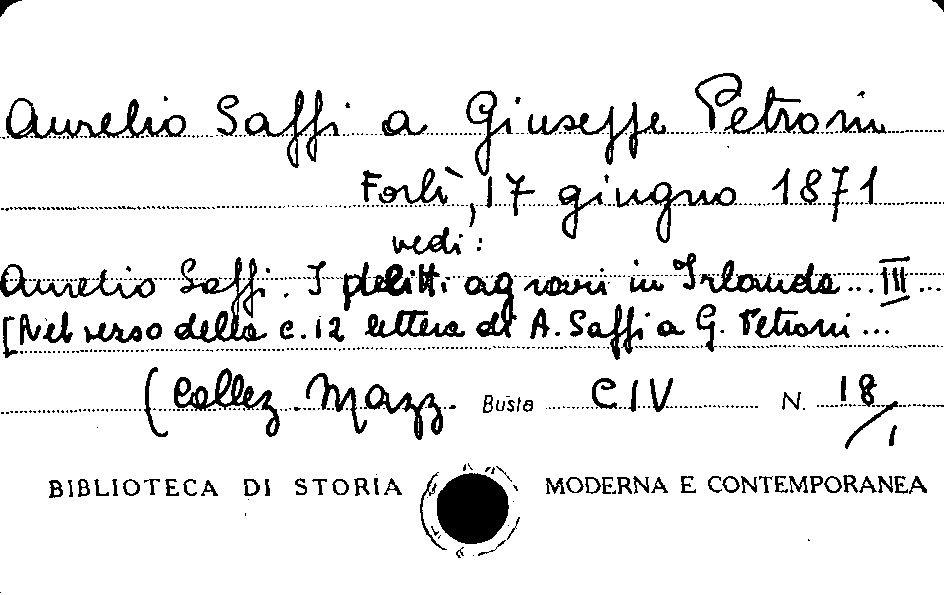 Aurelio Saffi a Giuseppe Petroni
Forlì, 17 giugno 1871
vedi:
Aurelio Saffi. I delitti agrari in Irlanda ... III ...
[Nel verso della c. 12 lettera di A. Saffi a G. Petroni ...
(Collez. Mazz. Busta CIV N. 18/1
BIBLIOTECA DI STORIA MODERNA E CONTEMPORANEA